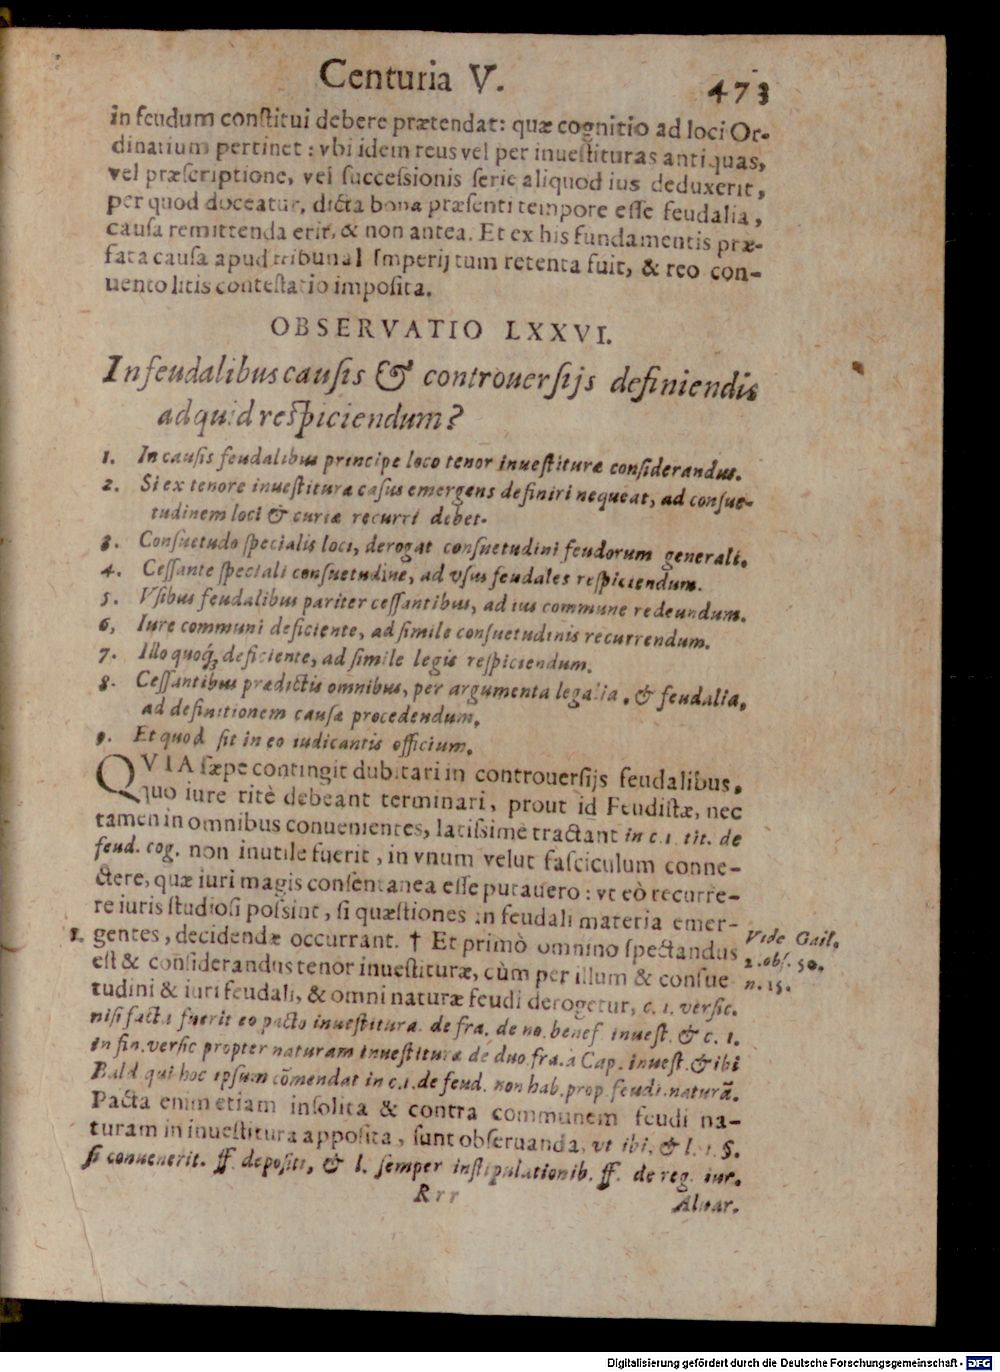 Centuria V. 473
in feudum conſtitui debere prætendat: quæ cognitio ad loci Or-
dinarium pertinet: vbi idem reus vel per inueſtituras antiquas,
vel præſcriptione, vel ſucceſsionis ſerie aliquod ius deduxerit,
per quod doceatur, dicta bona præſenti tempore eſſe feudalia,
cauſa remittenda erit, & non antea. Et ex his fundamentis præ-
fata cauſa apud tribunal Imperij tum retenta fuit, & reo con-
uento litis conteſtatio impoſita.
OBSERVATIO LXXVI.
In feudalibus cauſis & controuerſijs definiendis
ad quid reſpiciendum?
1. In cauſis feudalibus principe loco tenor inueſtituræ conſiderandus.
2. Si ex tenore inueſtituræ caſus emergens definiri nequeat, ad conſue-
tudinem loci & curiæ recurri debet.
3. Conſuetudo ſpecialis loci, derogat conſuetudini feudorum generali.
4. Ceſſante ſpeciali conſuetudine, ad vſus feudales reſpiciendum.
5. Vſibus feudalibus pariter ceſſantibus, ad ius commune redeundum.
6, Iure communi deficiente, ad ſimile conſuetudinis recurrendum.
7. Illo quoq́ꝫ deficiente, ad ſimile legis reſpiciendum.
8. Ceſſantibus prædictis omnibus, per argumenta legalia, & feudalia,
ad definitionem cauſæ procedendum,
9. Et quod ſit in eo iudicantis officium.
QVIA ſæpe contingit dubitari in controuerſijs feudalibus,
quo iure ritè debeant terminari, prout id Feudiſtæ, nec
tamen in omnibus conuenientes, latiſsimè tractant in c. 1. tit. de
feud. cog. non inutile fuerit, in vnum velut faſciculum conne-
ctere, quæ iuri magis conſentanea eſſe putauero: vt eò recurre-
re iuris ſtudioſi poſsint, ſi quæſtiones in feudali materia emer-
1. gentes, decidendæ occurrant. † Et primò omnino ſpectandus
eſt & conſiderandus tenor inueſtituræ, cùm per illum & conſue
tudini & iuri feudali, & omni naturæ feudi derogetur, c. 1. verſic.
niſi facta fuerit eo pacto inueſtitura. de fra. de no. benef. inueſt. & c. 1.
in fin. verſic propter naturam inueſtituræ de duo. fra. à Cap. inueſt. & ibi
Bald qui hoc ipſum cõmendat in c. 1. de feud. non hab. prop. feudi. naturã.
Pacta enim etiam inſolita & contra communem feudi na-
turam in inueſtitura appoſita, ſunt obſeruanda, vt ibi, & l. 1. §.
ſi conuenerit. ff. depoſiti, & l. ſemper inſtipulationib. ff. de reg. iur.
Vide Gail.
2. obſ. 50.
n. 15.
Rrr
Aluar.
Digitalisierung gefördert durch die Deutsche Forschungsgemeinschaft - DFG